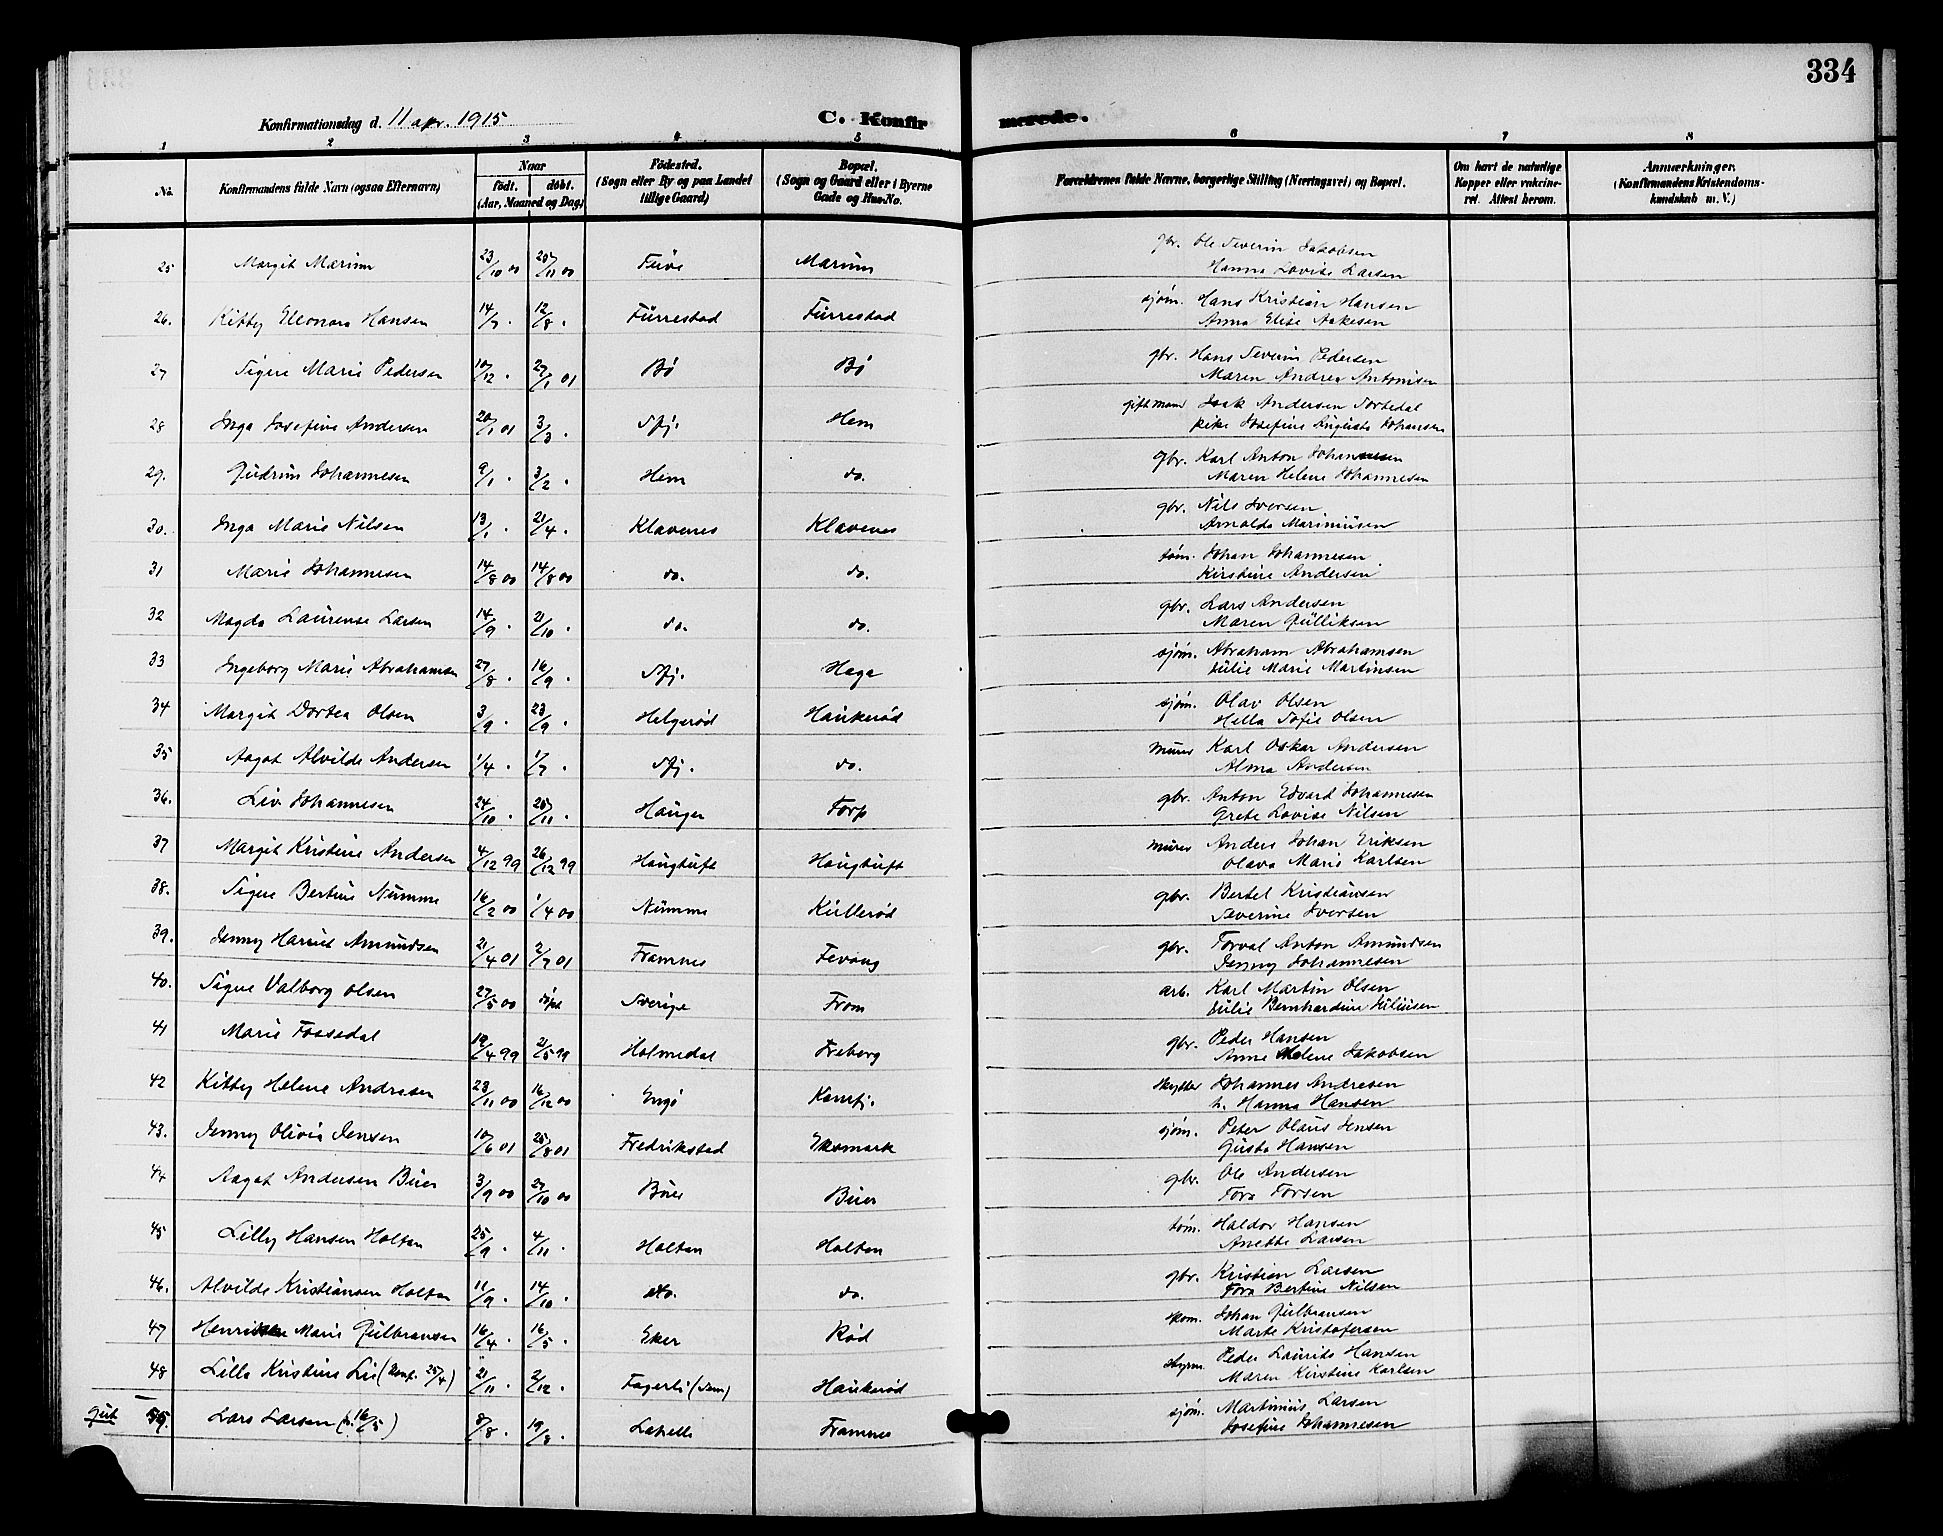 334
Konfirmationsdag d. 11 apr. 1915
C. Konfirmerede.
1 2 3 4 5 6 7 8
No. Konfirmandens fulde Navn (ogsaa Efternavn) Naar født. døbt. (Aar, Maaned og Dag) Fødested. (Sogn eller By og paa Landet tillige Gaard) Bopæl. (Sogn og Gaard eller i Byerne Gade og Hus-No. Forældrenes fulde Navne, borgerlige Stilling (Næringsvei) og Bopæl. Om havt de naturlige Kopper eller vaksineret. Attest herom. Anmærkninger. (Konfirmandens Kristendomskundskab m. V.)
25 Margit Marum 23/10 00 25/11 00 Marum gbr. Ole Severin Jakobsen
Hanna Lovise Larsen
26. Kitty Elleonora Hansen 14/7 . 12/8 . Furrestad Furrestad sjøm. Hans Kristian Hansen
Anna Elise Aakesen
27 Signe Marie Pedersen 10/12 . 27/1 01 Bø Bø gbr. Hans Severin Pedersen
Maren Andrea Antonisen
28 Inga Josefine Andersen 20/1 01 3/3 . Sfj. Hem gift mand Isak Andersen Tortedal
pike Josefine Augusta Johansen
29. Gudrun Johannesen 9/1 . 3/2 . Hem do. gbr. Karl Anton Johannesen
Maren Helene Johannesen
30. Inga Marie Nilsen 13/1 . 21/4 . Klavenes Klavenes gbr. Nils Iversen
Arnalda Marinusen
31 Marie Johannesen 14/8 00 14/8 00 do. do. tøm. Johan Johannesen
Kirstine Andersen
32 Magda Laurense Larsen 14/9 . 21/10 . do. do. gbr. Lars Andersen
Maren Gulliksen
33 Ingeborg Marie Abrahamsen 27/8 . 16/9 . Sfj. Haga sjøm. Abraham Abrahamsen
Julie Marie Martinsen
34 Margit Dortea Olsen 3/9 . 23/9 . Helgerød Haukerød sjøm. Olav Olsen
Hella Sofie Olsen
35 Aagot Alvilde Andersen 1/4 . 1/7 . Sfj. do. murer Karl Oskar Andersen
Alma Andersen
36. Liv Johannesen 24/10 . 25/11 . Haugen Torp gbr. Anton Edvard Johannesen
Grete Lovise Nilsen
37 Margit Kristine Andersen 4/12 99 26/12 99 Haugtuft Haugtuft murer Anders Johan Eriksen
Olava Marie Karlsen
38. Signe Bertine Numme 16/2 00 1/4 00 Numme Kullerød gbr. Bertel Kristiansen
Severine Iversen
39. Jenny Harriet Amundsen 21/4 01 2/7 01 Framnes Fevang gbr. Torval Anton Amundsen
Jenny Johannesen
40. Signe Valborg Olsen 27/5 00 Sverige From arb. Karl Martin Olsen
Julie Bernhardine Juliusen
41 Marie Fossedal 19/4 99 21/5 99 Holmedal Freberg gbr. Peder Hansen
Anne Helene Jakobsen
42 Kitty Helene Andresen 23/11 00 16/12 00 Engø Kamfj. skytter Johannes Andresen
h. Hanna Hansen
43. Jenny Olivia Jensen 10/6 01 25/8 01 Fredrikstad Ekemark sjøm. Peter Olaus Jensen
Gusta Hansen
44 Aagot Andersen Buer 3/9 00 27/10 00 Buer Buer gbr. Ole Andersen
Tora Torsen
45 Lilly Hansen Holtan 25/9 . 4/11 . Holtan Holtan tøm. Haldor Hansen
Anette Larsen
46. Alvilde Kristiansen Holtan 11/9 . 14/10 . do. do. gbr. Kristian Larsen
Tora Bertine Nilsen
47 Henrikke Marie Gulbransen 16/4 . 16/5 . Eker Rød skom. Johan Gulbransen
Marte Kristofersen
48 Lilla Kristine Lie (konf. 25/4) 21/11 . 2/12 . Fagerli (Sem) Haukerød styrm. Peder Laurits Hansen
Maren Kirstine Karlsen
gut 55. Lars Larsen (k. 16/5) 8/8 . 19/8 . Lahelle Framnes sjøm. Martinius Larsen
Josefine Johannesen